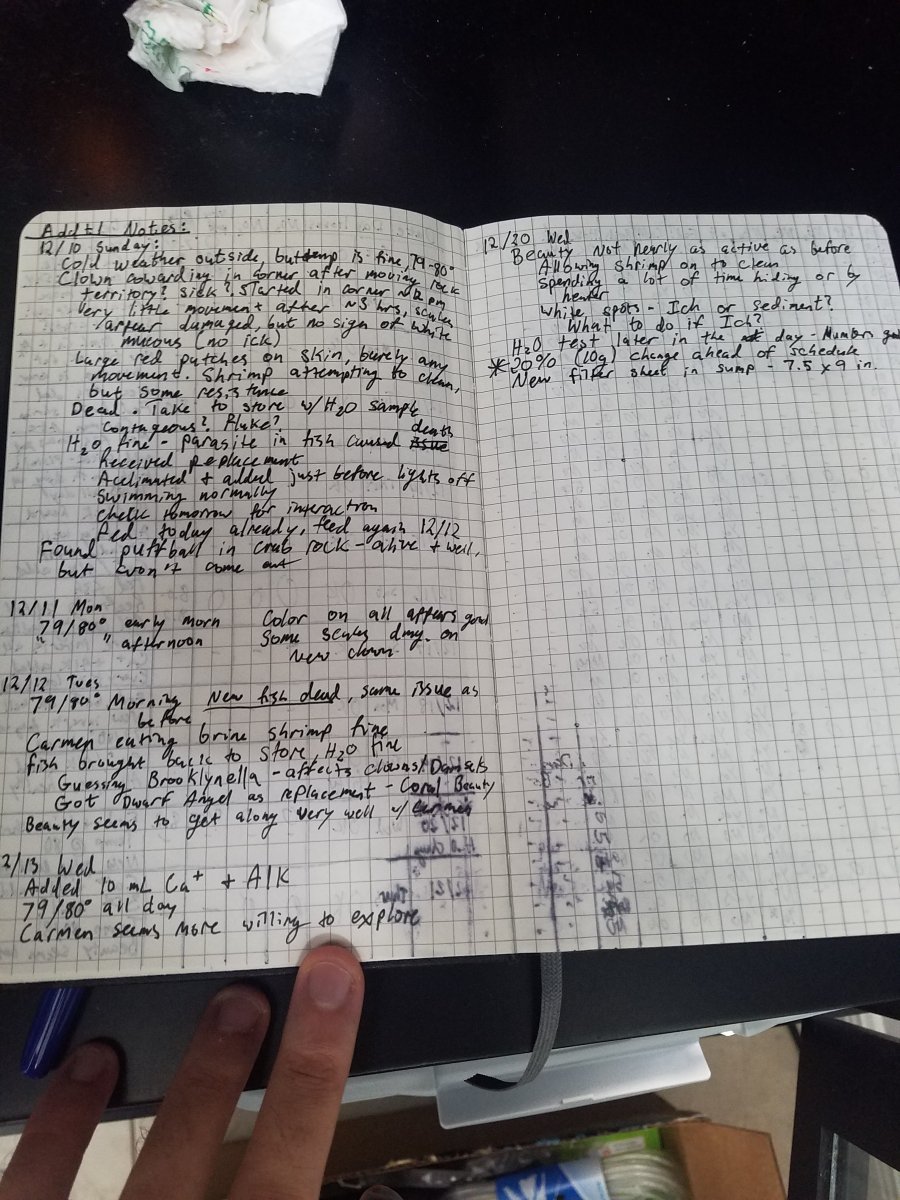 Addtl Notes:
12/10 Sunday:
Cold weather outside, but temp is fine 79-80°
Clown cowarding in corner after moving rock
territory? sick? Started in corner ~12 pm
Very little movement after ~3 hrs, scales
appear damaged, but no sign of white
mucous (no ick)
Large red patches on skin, barely any
movement. Shrimp attempting to clean,
but some resistance
Dead. Take to store w/ H2O sample
Contageous? Fluke?
H2O fine - parasite in fish caused issue death
Received replacement
Acclimated + added just before lights off
Swimming normally
Check tomorrow for interaction
Fed today already, feed again 12/12
Found puffball in crab rock - alive + well,
but won't come out
12/11 Mon
79/80° early morn Color on all appears good
" " afternoon Some scales dmg. on
New clown
12/12 Tues
79/80° Morning New fish dead, same issue as
before
Carmen eating brine shrimp fine
fish brought back to store, H2O fine
Guessing Brooklynella - affects clowns/Damsels
Got Dwarf Angel as replacement - Coral Beauty
Beauty seems to get along very well w/ Carmen
2/13 Wed
Added 10 mL Ca+ + Alk
79/80° all day
Carmen seems more willing to explore
12/20 Wed
Beauty Not nearly as active as before
Allowing shrimp on to clean
Spending a lot of time hiding or by
heater
White spots - Ich or sediment?
What to do if Ich?
H2O test later in the day - Numbers good
*20% (10g) change ahead of schedule
New filter sheet in sump - 7.5 x 9 in.